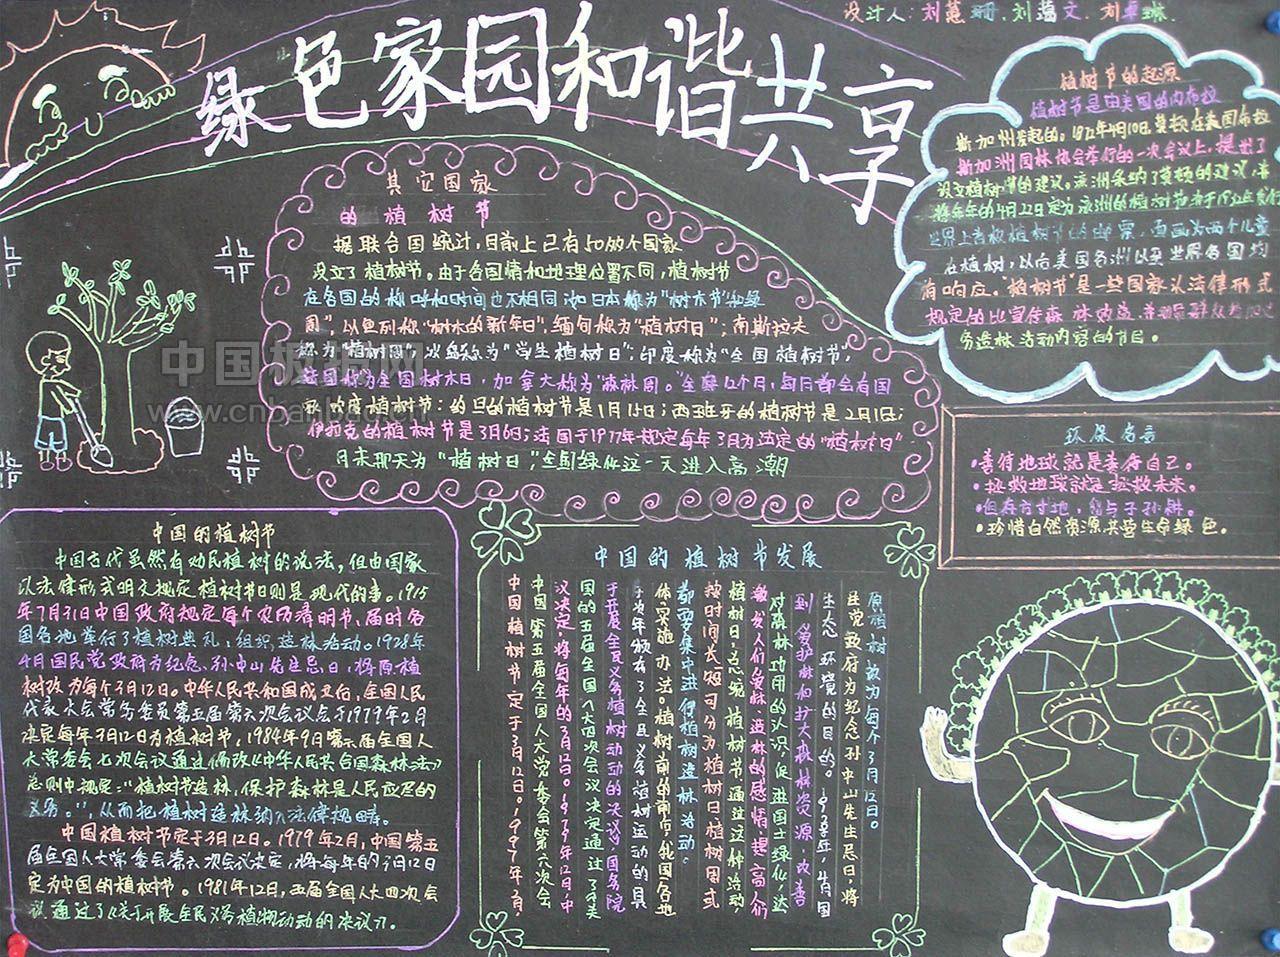 设计人:刘慧珊.刘蔼文.刘卓琳.
绿色家园和谐共享
植树节的起源
植树节是由美国的内布拉
斯加州发起的。1872年4月10日,莫顿在美国布拉
斯加洲园林协会举行的一次会议上,提出了
设立植树节的建议。该洲采纳了莫顿的建议,并
将每年的4月22日定为该洲的植树节
世界上首枚植树节的邮票,画面为两个儿童
在植树,以后美国各洲以至世界各国均
有响应。"植树节"是一些国家以法律形式
规定的以宣传森林效益,并动员群众参加
务造林活动内容的节日。
其它国家
的植树节
据联合国统计,目前上已有50多个国家
设立了植树节。由于各国情和地理位置不同,植树节
在各国的称呼和时间也不相同,如日本称为"树木节"和绿
周",以色列称"树木的新年日",缅甸称为"植树日";南斯拉夫
称为"植树周",为"学生植树日";印度称为"全国植树节,
称为全国树木日,加拿大称为"森林周。"全年12个月,每月都会有国
植树节:约旦的植树节是1月15日;西班牙的植树节是2月1日;
伊拉克的植树节是3月6日;法国于1977年规定每年3月为法定的"植树日"
月末那天为"植树日",全国绿化这一天进入高潮
中国板报网
www.cnbanbao.cn
环保名言
·善待地球就是善待自己。
·拯救地球就是拯救未来。
·但存方寸地,留与子孙耕。
·珍惜自然资源共营生命绿色。
中国的植树节
中国古代虽然有劝民植树的说法,但由国家
以法律形式明文规定植树节日则是现代的事。1915
年7月31日中国政府规定每个农历清明节,届时各
国各地举行了植树典礼,组织造林活动。1928年
4月国民党政府为纪念孙中山先生忌日,将原植
树改为每个3月12日。中华人民共和国成立后,全国人民
代表大会常务委员第五届第六次会议于1979年2月
决定每年3月12日为植树节,1984年9月第六届全国人
大常委会七次会议通过修改《中华人民共合国森林法》
总则中规定:"植树节造林,保护森林是人民应尽的
义务。",从而把植树造林纳入法律规畴。
中国植树节定于3月12日。1979年2月,中国第五
届全国人大常委会第六次会议决定,将每年的3月12日
定为中国的植树节。1981年12月,五届全国人大四次会
议通过了《关于开展全民义务植物动动的决议》.
中国的植树节发展
原植树改为每个3月12日。
民党政府为纪念孙中山先生忌日,将
生态环境的目的。1928年,4月国
到爱护林和扩大森林资源、改善
对森林功用的认识,促进国土绿化,达
激发人们爱林、造林的感情,提高人们
植树日,总境植树节通过这种活动,
按时间长短可分为植树日植树周或
都要集中进行植树造林活动。
体实施办法。植树前的前节,我国各地
于次年颁布了全民义务植树运动的具
于开展全民义务植树动动的决议》,国务院
国的五届全国人大四次会议决定通过了
议决定,将每年的3月12日。1979年12月,中
中国第五届全国人大常委会第六次会
中国植树节定于3月12日。1997年2月,